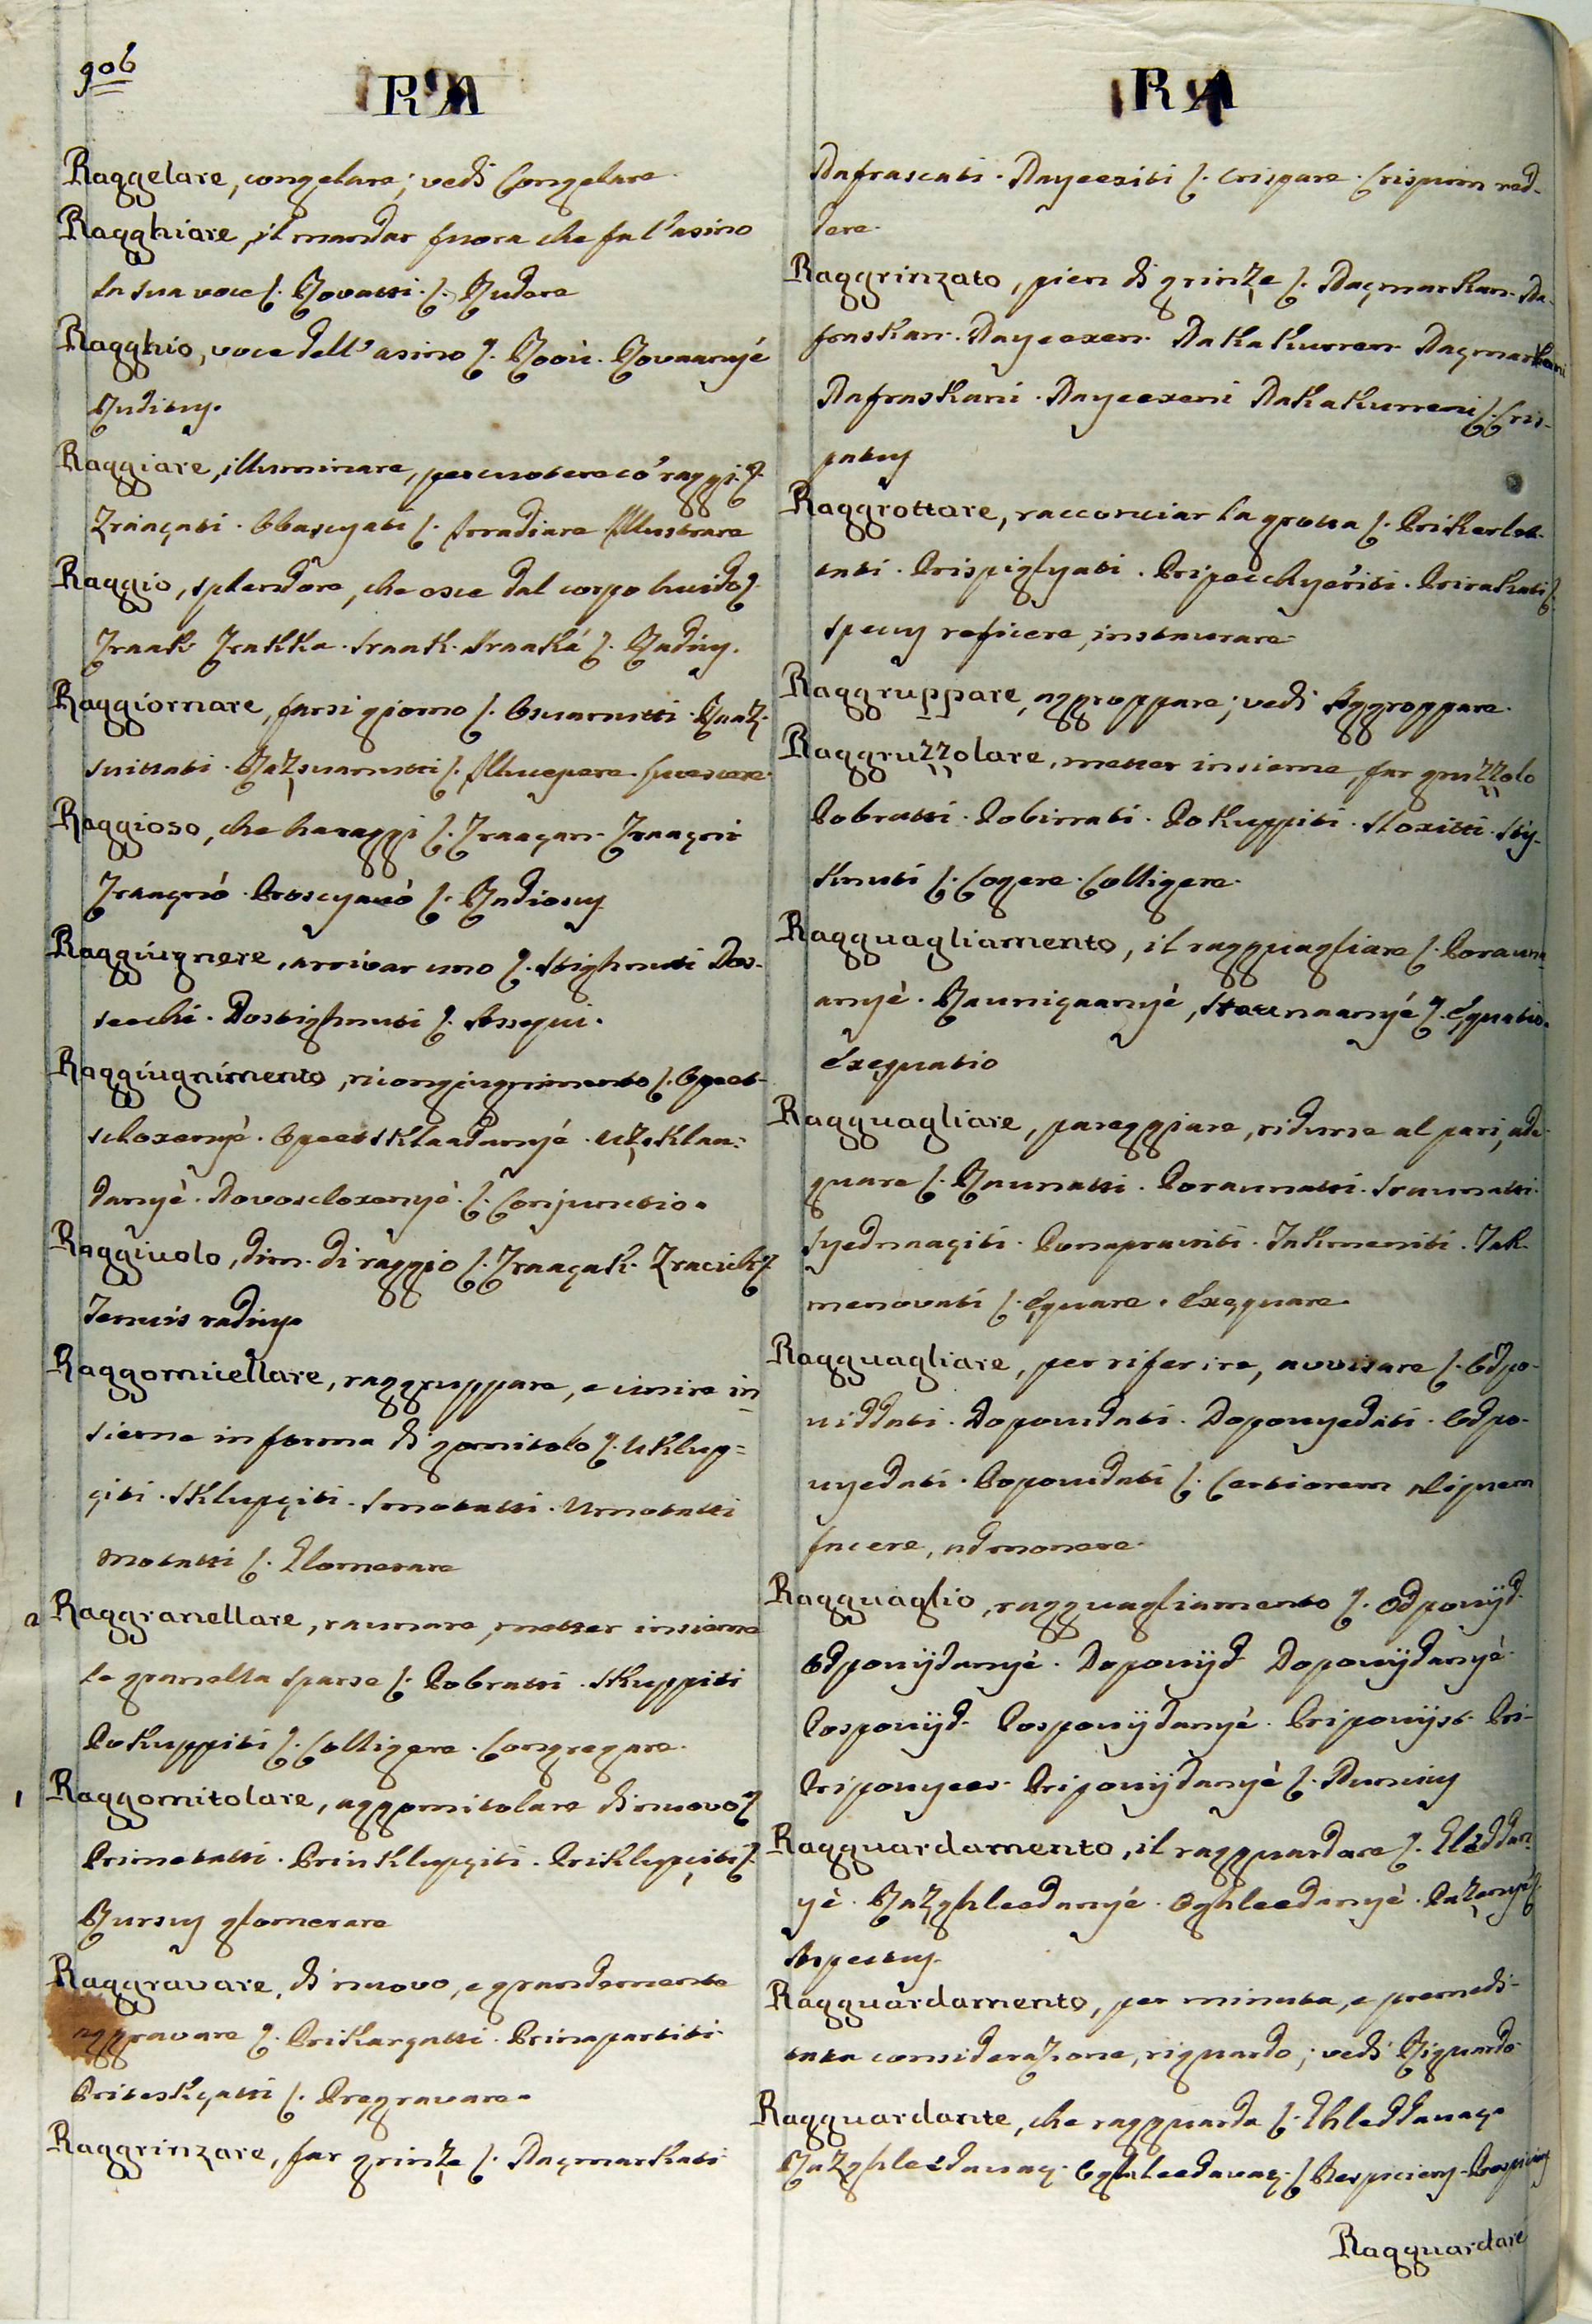 906
RA
Raggelare, congelare; vedi Congelare.
Ragghiare, il mandar fuora che fa l'asino
la sua voce ſ. Rovatti. ſ. Rudere
Ragghio, voce dell'asino ſ. Rooù. Rovaanyé
Ruditus.
Raggiare, illuminare, percuotere có raggi. ſ.
Zraaçati. Obascyati ſ. Irradiare Illustrare
Raggio, splendore, che esce dal corpo lucido ſ.
Zraak Zrakka. Sraak. Sraaká ſ. Radius.
Raggiornare, farsi giorno ſ. Osuanutti. Raaz-
suittati. Razsuanutti ſ. Illucescere. Lucescere.
Raggioso, che ha raggi ſ. Zraaçan. Zraaçni
Zraaçnó. Proscyanó ſ. Radiosus
Raggiúgnere, arrivar uno ſ. Stighnuti Dos-
seechi. Dostighnuti ſ. Assequi.
Raggiugnimento, ricongiugnimento ſ. Opeet-
sloxenyé. Opeetsklaadanyé. Uzsklaa-
danyé. Dovoscloxenyé. ſ. Conjunctio.
Raggiuolo, dim. di raggio ſ. Zraaçak. Zracich ſ.
Tenuis radius
Raggomicellare, raggruppare, e unire in
sieme in forma di gomitolo ſ. Uklup=
çiti. Sklupçiti. Smotatti. Umotatti
Motatti ſ. Glomerare
a Raggranellare, raunare, metter insieme
le granella sparse ſ. Pobratti. Skuppiti
Pokuppiti ſ. Colligere. Congregare.
1 Raggomitolare, aggomitolare di nuovo ſ.
Primotatti. Priuklupçiti. Priklupçiti ſ.
Rursus glomerare
Raggravare, di nuovo, e grandemente
aggravare ſ. Prikargatti. Prinapartiti.
Priteskyatti ſ. Pregravare.
Raggrinzare, far grinze ſ. Naçmarkati
RA
Nafrascati. Nayeexiti ſ. Crispare. Crispum red-
dere.
Raggrinzato, pien di grinze ſ. Naçmarkan. Na-
fraskan. Nayeexen. Nakakurren. Naçmarkani
Nafraskani. Nayeexeni Nakakurreni ſ. Cris-
patus
Raggrottare, racconciar la grotta ſ.
Prispiglyati. Pripecchyeriti. Prirakati ſ.
Specus reficere, instaurare.
Raggruppare, aggroppare; vedi Aggroppare.
Raggruzzolare, metter insieme, far gruzzolo
Pobratti. Pobirrati. Pokuppiti. Sloxitti. Sty-
sknuti ſ. Cogere. Colligere.
Ragguagliamento, il ragguagliare ſ. Poraunа-
anyé. Raunigaanyé, Sraunaanyé ſ. Equatio.
Exequatio
Ragguagliare, pareggiare, ridurre al pari, ade-
quare ſ. Raunatti. Poraunatti. Sraunatti.
Syednaaçiti. Ponapraviti. Takmeniti. Tak-
menovati ſ. Equare. Exequare.
Ragguagliare, per riferire, avvisare ſ. Odpo-
uiddati. Dopouidati. Dopouyedati. Odpo-
uyedati. Popouidati ſ. Certiorem aliquem
facere, admonere.
Ragguaglio, ragguagliamento ſ. Odpouijd.
Odpouijdanyé. Dopouijd. Dopouijdanyé.
Pospouijd. Pospouijdanyé. Pripouijst. Pri-
Pripouyees. Pripouijdanyé ſ. Nuncius
Ragguardamento, il ragguardare ſ. Gleddan-
yé. Razghleedanyé. Oghleedanyé. Pazenyé ſ.
Aspectus.
Ragguardamento, per minuta, e premedi-
tata considerazione, riguardo; vedi Riguardo
Ragguardante, che ragguarda ſ. Ghleddauaç.
Razghleedauaç. Oghleedauaç. ſ Respiciens. Prospiciens
Ragguardare